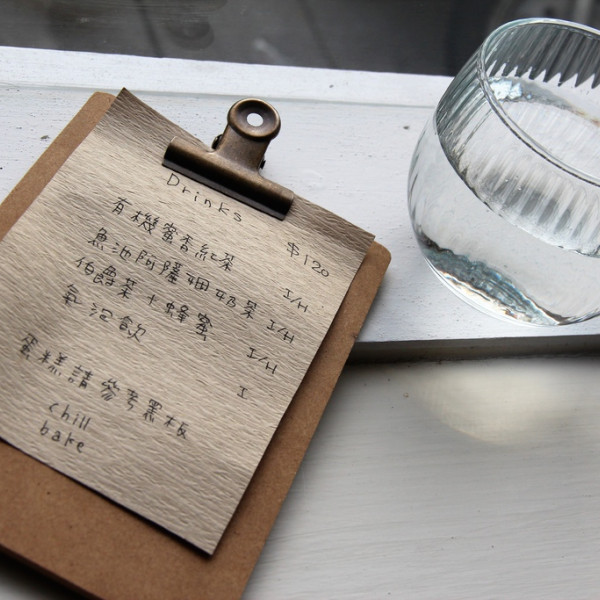 Drinks
$120
有機蜜香紅茶 I/H
魚池阿薩姆奶茶 I/H
伯爵茶+蜂蜜 I/H
氣泡飲 I
蛋糕請參考黑板
chill
bake